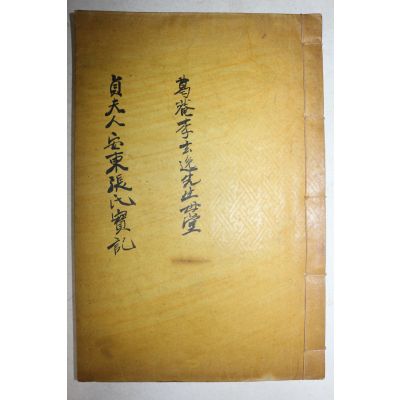 葛菴李玄逸先生母堂
貞夫人安東張氏實記